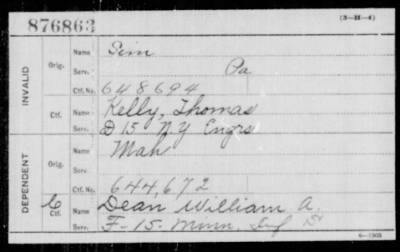 876863
(3-H-4)
INVALID
Orig.
Name Sim
Serv. Pa
Ctf. No. 648694
Ctf.
Name Kelly, Thomas
Serv. D 15 N.Y Engrs
DEPENDENT
Orig.
Name Mah
Serv.
Ctf. No. 644,672
Ctf.
Name Dean William A.
Serv. F-15- Minn. Inf
6-1903